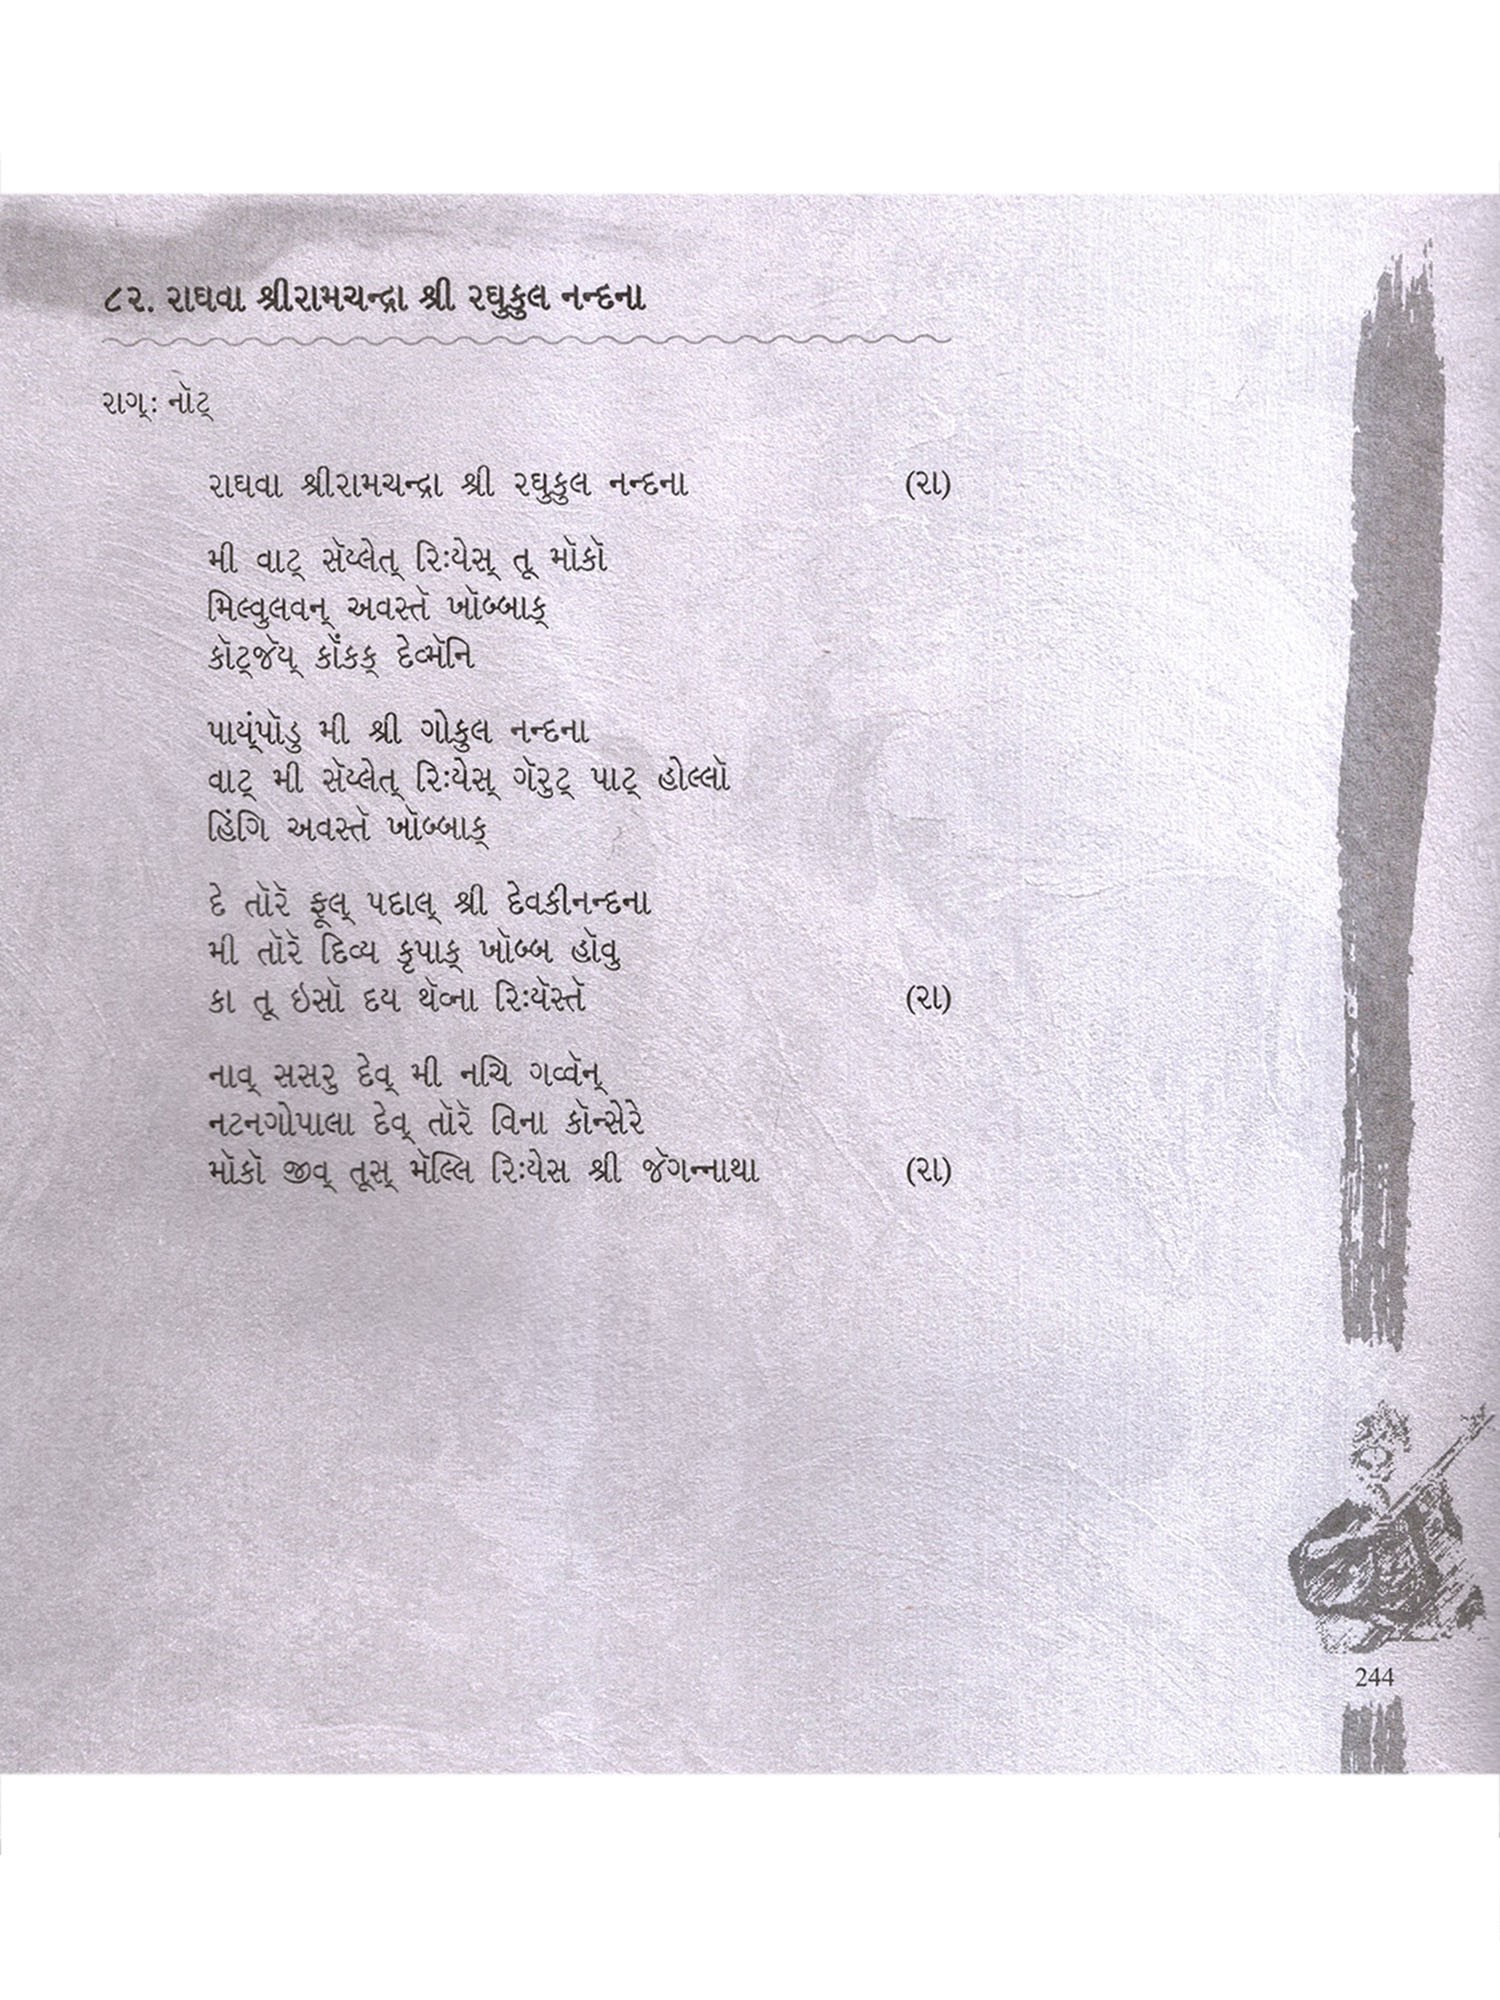 ૮૨. રાઘવા શ્રીરામચન્દ્રા શ્રી રઘુકુલ નન્દના
રાગ્: નૉટ્
રાઘવા શ્રીરામચન્દ્રા શ્રી રઘુકુલ નન્દના (રા)
મી વાટ્ સૅય્લેત્ રિઃયેસ્ તૂ મૉકૉ
મિલ્વુલવન્ અવસ્તૅ ખૉબ્બાક્
કૉટ્જૅય્ કૉંકક્ દેવ્મૅનિ
પાય્ંપૉડુ મી શ્રી ગોકુલ નન્દના
વાટ્ મી સૅય્લેત્ રિઃયેસ્ ગૅરુટ્ પાટ્ હોલ્લૉ
હિંગિ અવસ્તૅ ખૉબ્બાક્
દે તૉરૅ ફૂલ્ પદાલ્ શ્રી દેવકીનન્દના
મી તૉરૅ દિવ્ય કૃપાક્ ખૉબ્બ હૉવુ
કા તૂ ઇસૉ દય થૅવ્ના રિઃયૅસ્તૅ (રા)
નાવ્ સસરુ દેવ્ મી નચિ ગવ્વૅન્
નટનગોપાલા દેવ્ તૉરૅ વિના કૉન્સેરે
મૉકૉ જીવ્ તૂસ્ મૅલ્લિ રિઃયેસ શ્રી જૅગન્નાથા (રા)
244